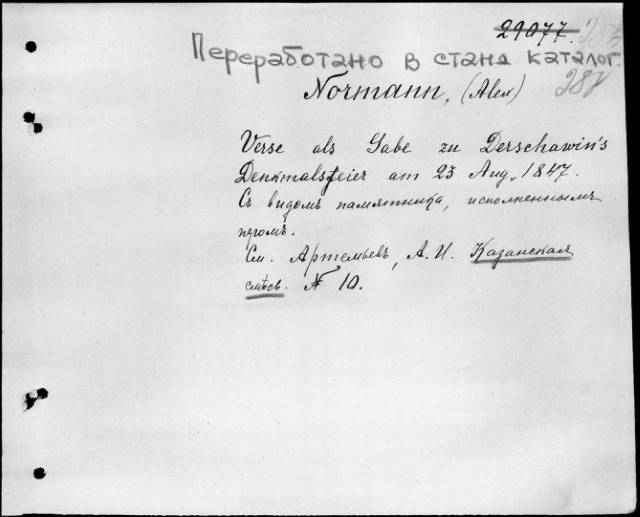 29077.
Переработано в станд каталог.
287
Normann, (Alex)
Verse als Gabe zu Derschawin's
Denkmalsfeier am 23 Aug. 1847.
Съ видомъ памятника, исполненнымъ
перомъ.
См. Артемьевъ, А. И. Казанская
смѣсь. № 10.